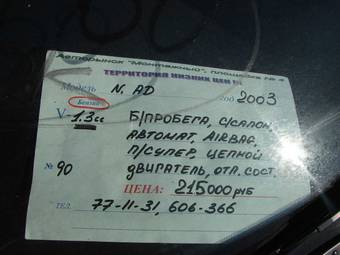 Авторынок "Монтажный", площадка № 4
ТЕРРИТОРИЯ НИЗКИХ ЦЕН
Модель N. AD год 2003
Бензин
V- 1.3 cc Б/ПРОБЕГА, С/САЛОН,
АВТОМАТ, AIRBAG,
П/СУПЕР, ЦЕПНОЙ
№ 90 ДВИГАТЕЛЬ, ОТЛ. СОСТ.
ЦЕНА: 215000 РУБ
ТЕЛ. 77-11-31, 606-366